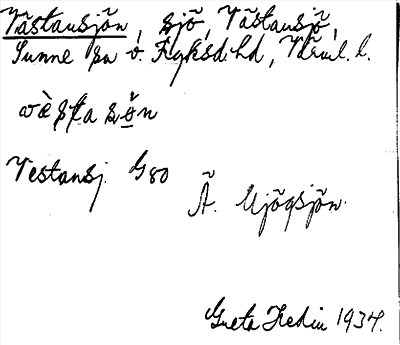 Västansjön, sjö, Västansjö,
Sunne sn o. Fryksd. hd, Värml. l.
wès̷t̷a sön
Vestansj. G80
Ä. Mjögsjön.
Greta Hedin 1934.